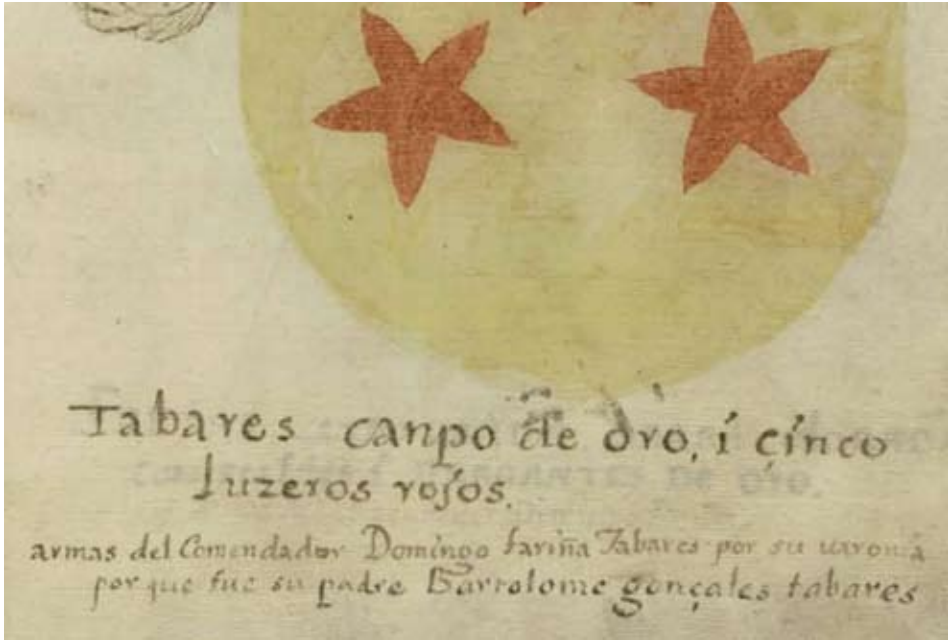 Tabares canpo de oro, i çinco
luzeros rojos.
armas del Comendador Domingo fariña Tabares por su uaronia
por que fue su padre Bartolome gonçales tabares